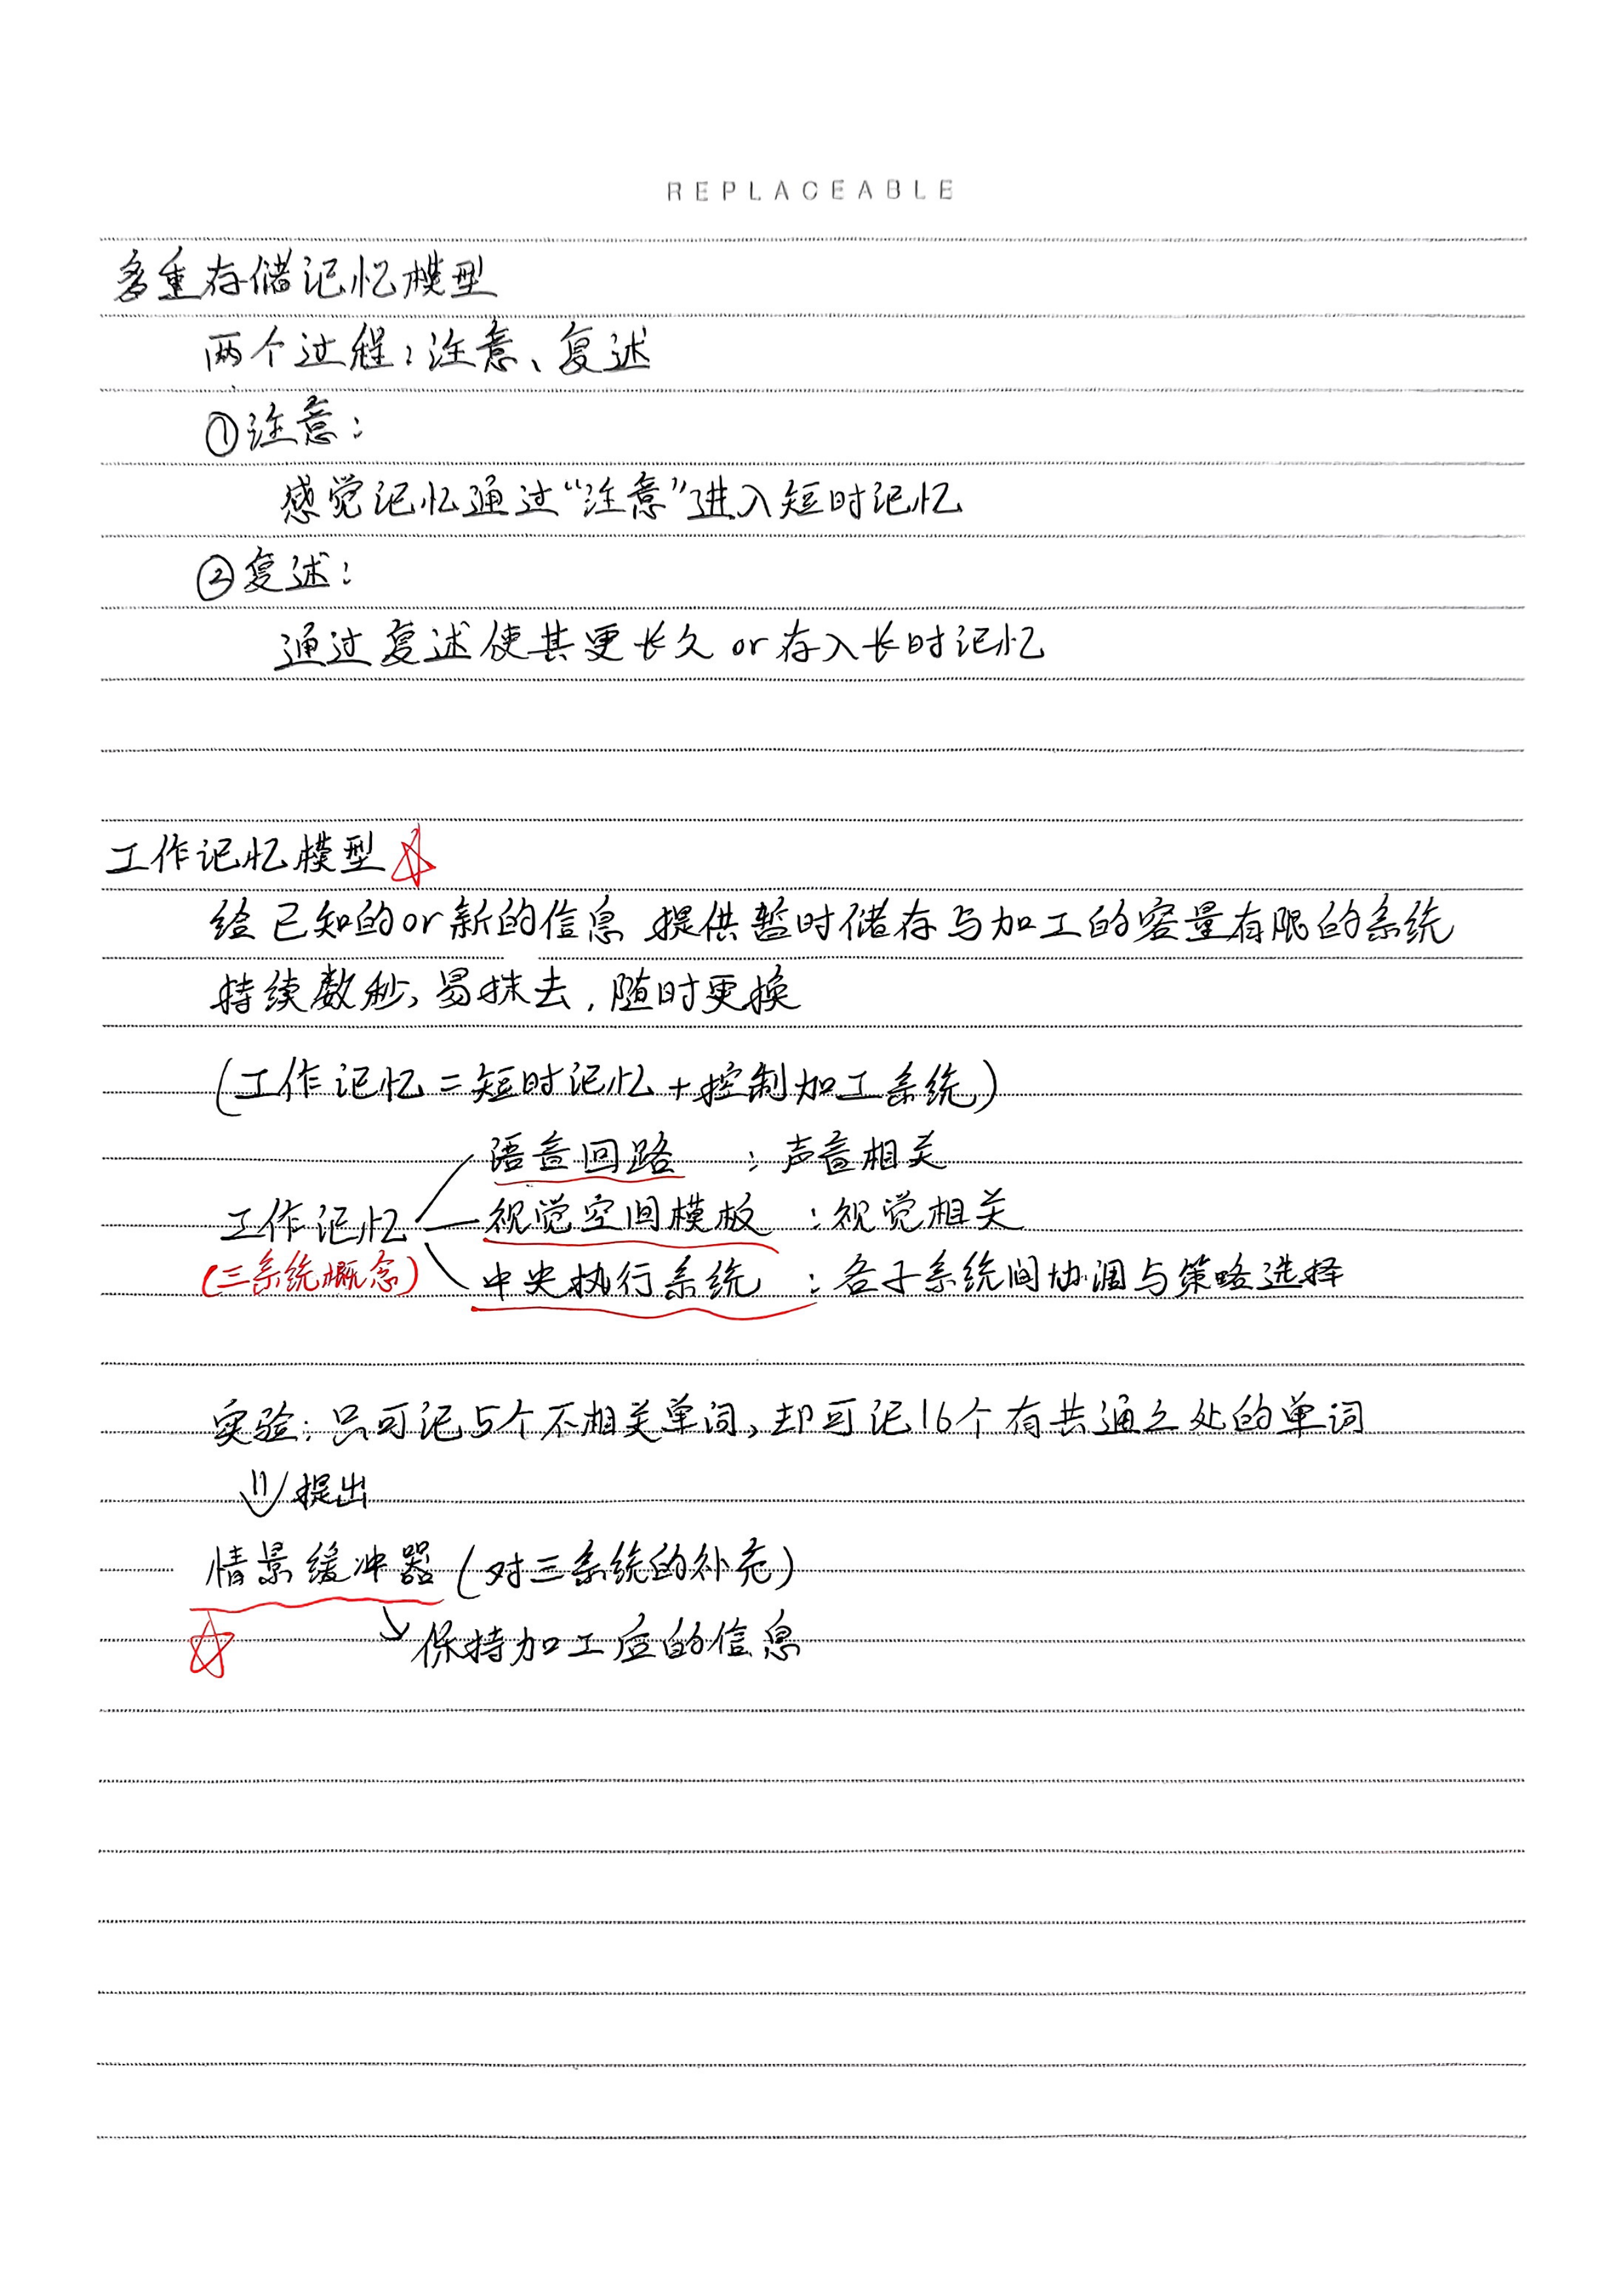 REPLACEABLE
多重存储记忆模型
两个过程：注意、复述
①注意：
感觉记忆通过“注意”进入短时记忆
②复述：
通过复述使其更长久or存入长时记忆
工作记忆模型
给已知的or新的信息 提供暂时储存与加工的容量有限的系统
持续数秒，易抹去，随时更换
(工作记忆=短时记忆+控制加工系统)
语音回路 ：声音相关
工作记忆 视觉空间模板 ：视觉相关
(三系统概念) 中央执行系统 ：各子系统间协调与策略选择
实验：只可记5个不相关单词，却可记16个有共通之处的单词
提出
情景缓冲器(对三系统的补充)
保持加工后的信息